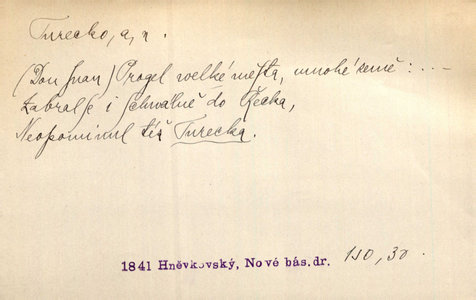 Turecko, a, n.
(Don Juan) Progel welké města, mnohé země: ...
Zabral se i schwálně do Řecka,
Neopominul též Turecka.
1841 Hněvkovský, Nové bás. dr. 150, 30.